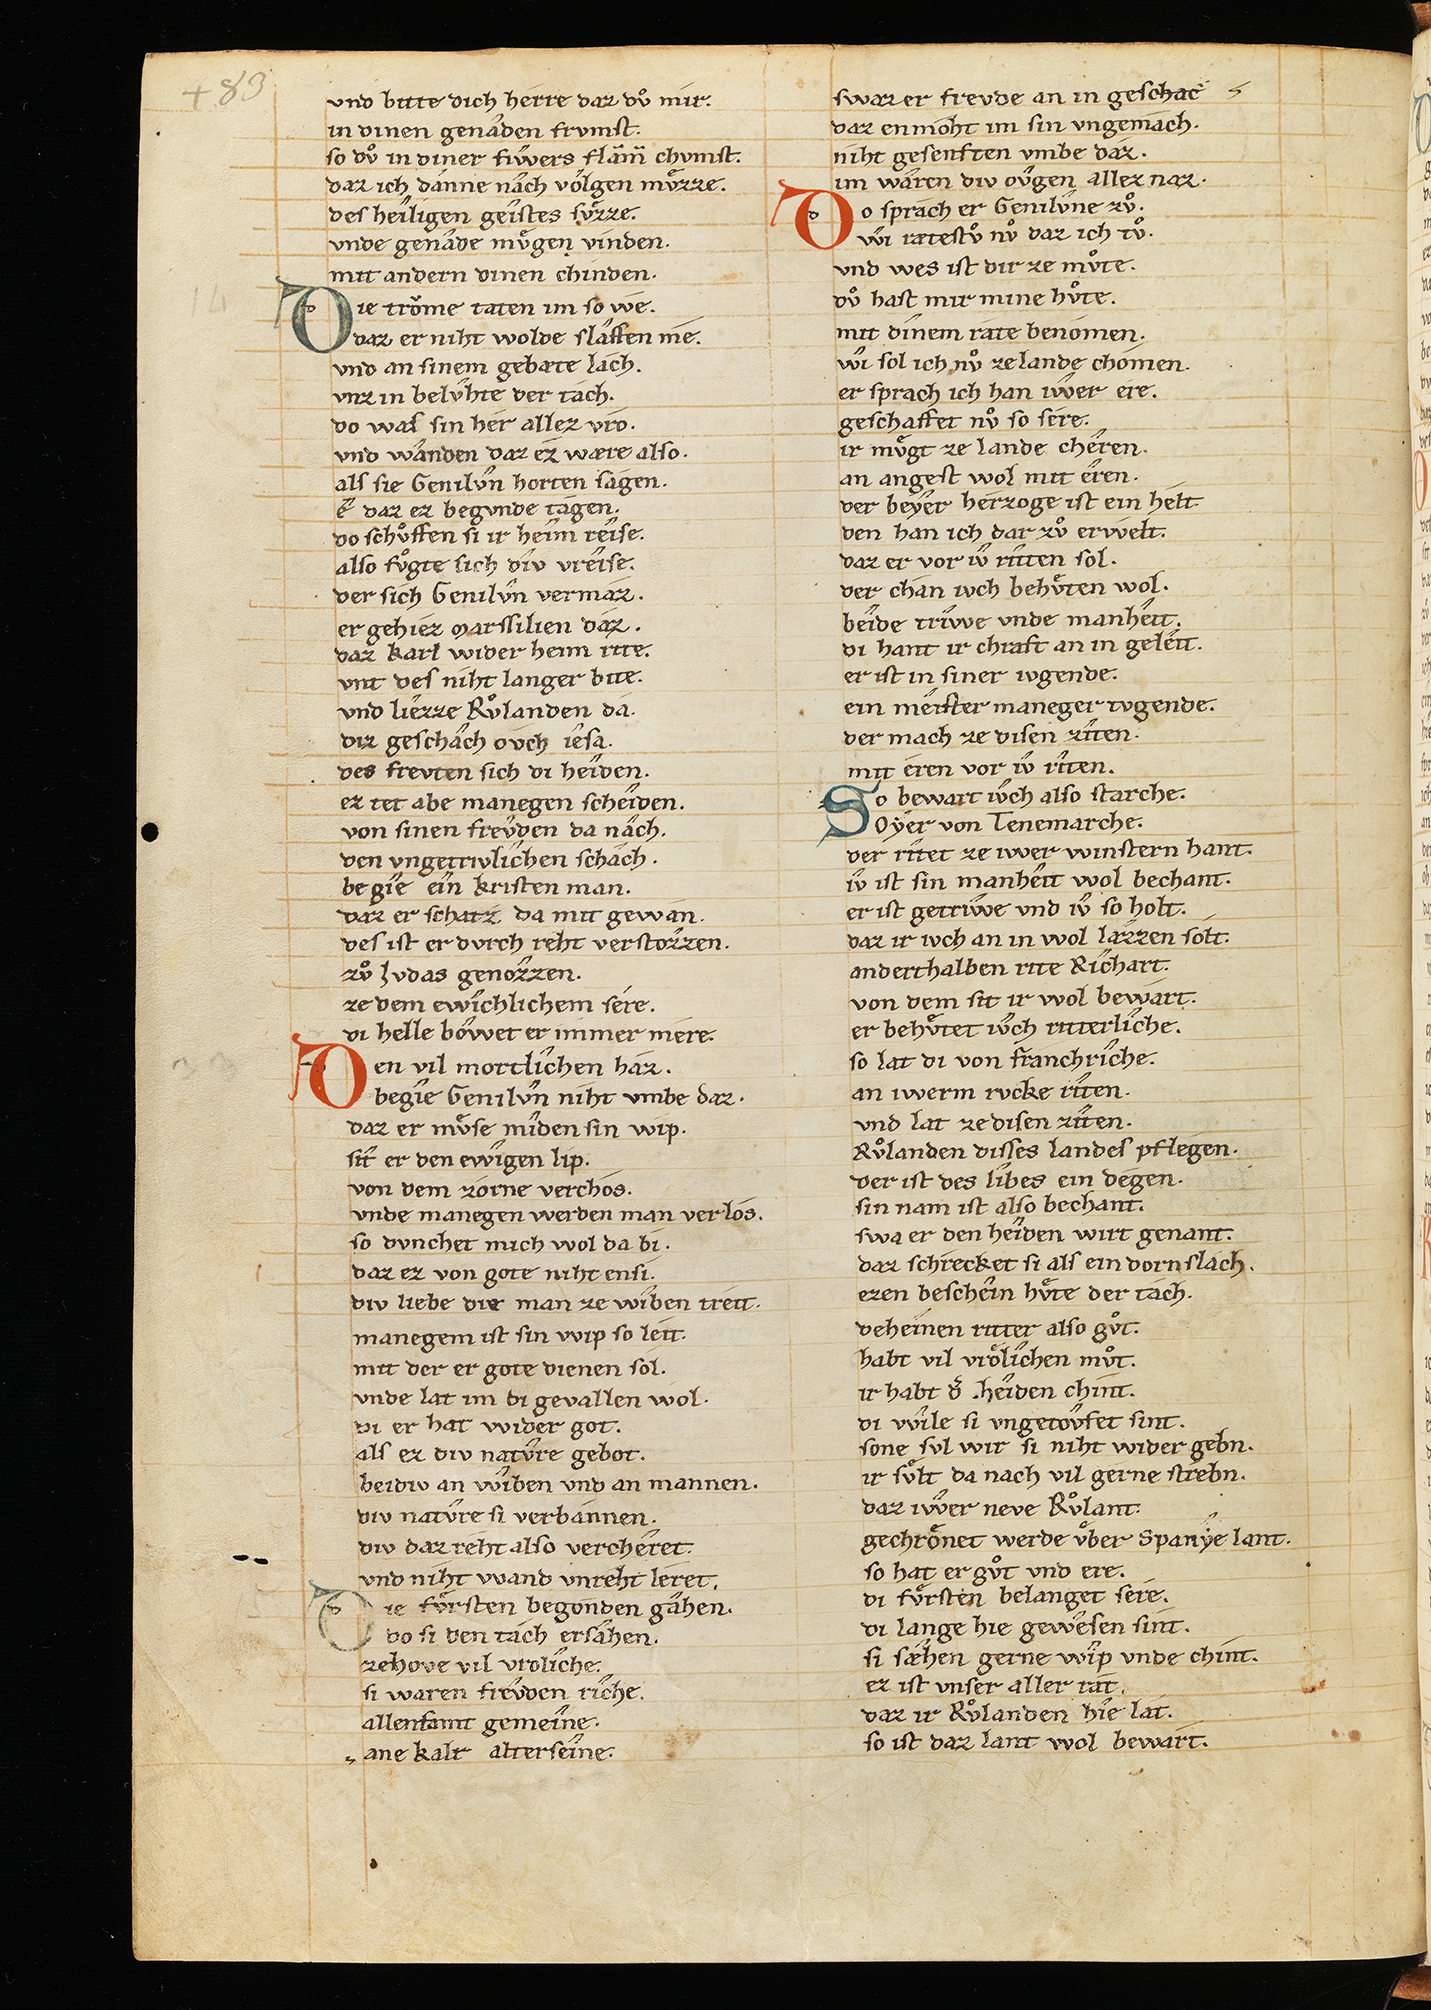 + 83
vnd bitte dich herre daz dv̊ mir.
in dinen genâden frvmst.
so dv̊ in diner fiwers flâm̄ chvmst.
daz ich danne nâch volgen mv̊zze.
des heîligen geîstes sv̊zze.
vnde genâde mv̊gen vinden.
mit andern dinen chinden.
Die trôme taten im so we.
daz er niht wolde slâffen me.
vnd an sinem gebæte lach.
vnz in belv̂hte der tach.
do waſ sin her allez vro.
vnd wânden daz ez wære also.
als sie Genilvn horten sagen.
ê daz ez begvnde tagen.
do schv̊ffen si ir heim reîse.
also fv̊gte sich div vreîse.
der sich Genilvn vermaz.
er gehiez Marssilien daz.
daz karl wider heim rite.
vnt des niht langer bite.
vnd liezze Rv̊landen da.
diz geschâch ovch iêsa.
des frevten sich di heîden.
ez tet abe manegen scheîden.
von sinen frevden da nâch.
den vngetrivlîchen schâch.
begie eîn kristen man.
daz er schatz da mit gewan.
des ist er dvrch reht verstozzen.
zv̊ Ivdas genozzen.
ze dem ewîchlichem sere.
di helle bôwet er immer mere.
Den vil mortlîchen haz.
begîe Genilvn niht vmbe daz.
daz er mv̊se mîden sin wip.
sît er den ewîgen lip.
von dem zorne verchos.
vnde manegen werden man verlos.
so dvnchet mich wol da bi.
daz ez von gote niht ensi.
div liebe die man ze wîben treit.
manegem ist sin wip so leit.
mit der er gote dienen sol.
vnde lat im di gevallen wol.
di er hat wider got.
als ez div natv̂re gebot.
beidiv an wîben vnd an mannen.
div natv̂re si verbannen.
div daz reht also vercheret.
vnd niht wand vnreht leret.
Die fv̊rsten begonden gâhen.
do si den tach ersâhen.
ze hove vil vrolîche.
si waren frevden rîche.
allensamt gemeîne.
ane kalr alterseîne.
swaz er frevde an in geschac
daz enmoht im sin vngemach.
niht gesenften vmbe daz.
im wâren div ovgen allez naz.
Do sprâch er Genilvne zv̊.
wî ratestv̊ nv̊ daz ich tv̊.
vnd wes ist dir ze mv̊te.
dv̊ hast mir mine hv̊te.
mit dînem râte benomen.
wî sol ich nv̊ ze lande chomen.
er sprach ich han iwer ere.
geschaffet nv̊ so sere.
ir mv̊gt ze lande cheren.
an angest wol mit eren.
der beyer herzoge ist ein helt
den han ich dar zv̊ erwelt.
daz er vor iv̂ riten sol.
der chan ivch behv̊ten wol.
beîde triwe vnde manheit.
di hant ir chraft an in geleit.
er ist in siner ivgende.
ein meîster maneger tvgende.
der mach ze disen zîten.
mit eren vor iv̂ rîten.
So bewart ivch also starche.
Oyer von Tenemarche.
der rîtet ze iwer winstern hant.
iv̂ ist sin manheît wol bechant.
er ist getriwe vnd iv̂ so holt.
daz ir ivch an in wol lazzen solt.
anderthalben rite Richart.
von dem sit ir wol bewart.
er behv̊tet ivch ritterlîche.
so lat di von franchrîche.
an iwerm rvcke rîten.
vnd lat ze disen zîten.
Rv̊landen disses landeſ pflegen.
der ist des lîbes ein degen.
sin nam ist also bechant.
swa er den heîden wirt genant.
daz schrecket si als ein dornslach.
ezen bescheîn hv̊te der tach.
deheinen ritter also gv̊t.
habt vil vrôlîchen mv̊t.
ir habt d̄ heîden chint.
di wîle si vngetovfet sint.
sone svl wir si niht wider gebn.
ir sv̊lt da nach vil gerne strebn.
daz iwer neve Rv̊lant.
gechrônet werde v̊ber Spanye lant.
so hat er gv̊t vnd ere.
di fv̊rsten belanget sere.
di lange hie gewesen sint.
si sæhen gerne wîp vnde chint.
ez ist vnser aller rat.
daz ir Rv̊landen hîe lat.
so ist daz lant wol bewart.